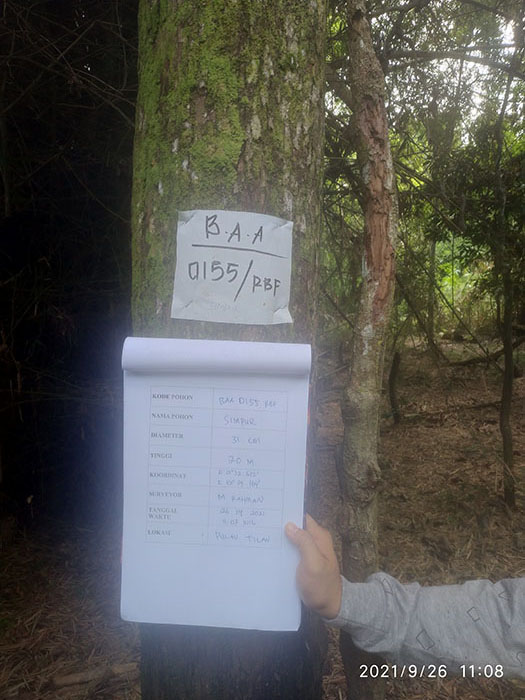 B.A.A
0155/RBF
KODE POHON BAA 0155 RBF
NAMA POHON SIMPUR
DIAMETER 31 cm
TINGGI 20 M
KOORDINAT
SURVEYOR M RAHMAN
TANGGAL
WAKTU
LOKASI PULAU TILAN
2021/9/26 11:08